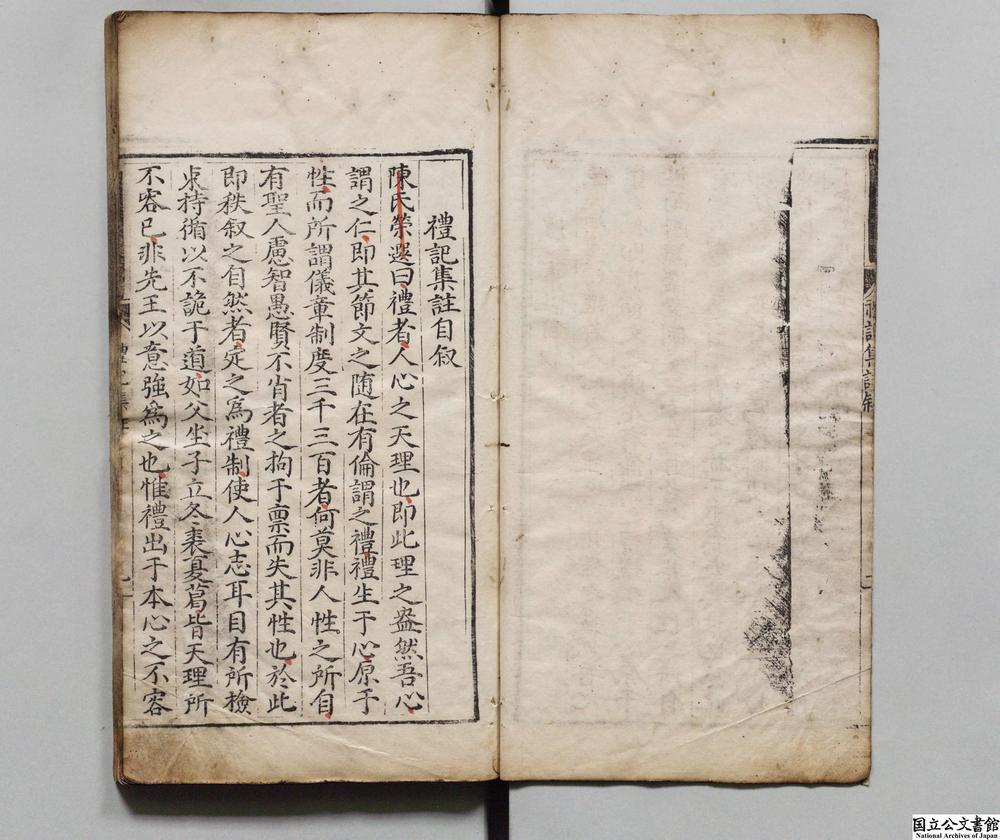 禮記集註自叙
陳氏榮選曰禮者人心之天理也即此理之盎然吾心
謂之仁即其節文之随在有倫謂之禮禮生于心原于
性而所謂儀章制度三千三百者何莫非人性之所自
有聖人慮智愚賢不肖者之拘于禀而失其性也於此
即秩叙之自然者定之爲禮制使人心志耳目有所檢
束持循以不詭于道如父坐子立冬裘夏葛皆天理所
不容已非先王以意強爲之也惟禮出于本心之不容
国立公文書館
National Archives of Japan